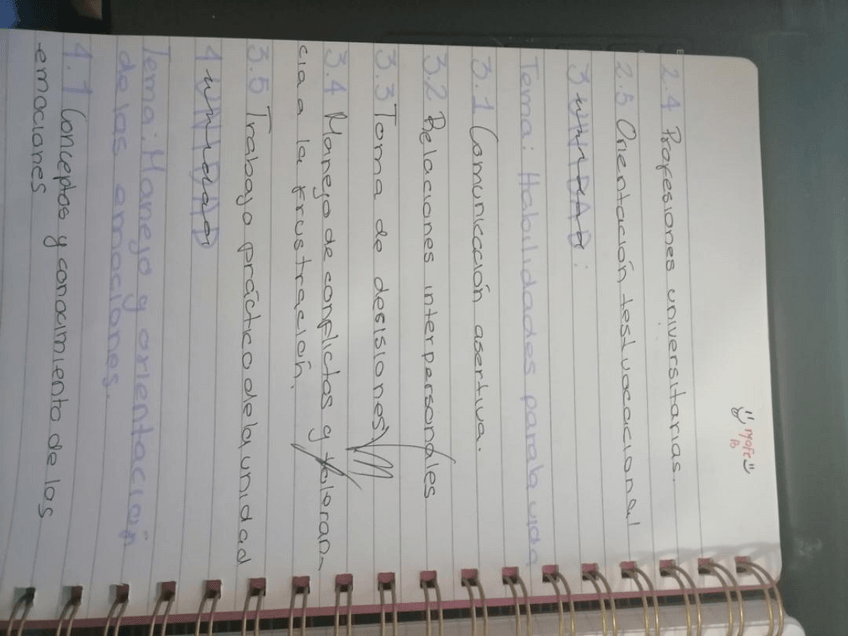 2.4 Profesiones universitarias.
2.5 Orientación test vocacional
3 UNIDAD:
Tema: Habilidades para la vida
3.1 Comunicación asertiva.
3.2 Relaciones interpersonales
3.3 Toma de desisiones
3.4 Manejo de conflictos y toleran-
cia a la frustración.
3.5 Trabajo práctico de la unidad
4 UNIDAD
Tema: Manejo y orientación
de las emociones.
4.1 Conceptos y conocimiento de las
emociones